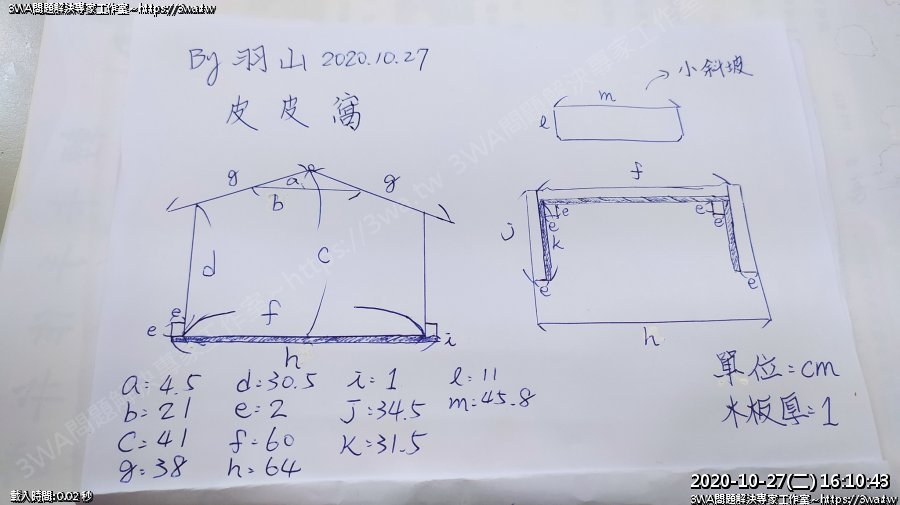 3WA問題解決專家工作室~https://3wa.tw
By 羽山 2020.10.27
皮皮窩
小斜坡
m
l
g
a
g
b
c
d
e
e
f
h
i
f
j
e
e
k
e
e
e
h
a=4.5 d=30.5 i=1 l=11
b=21 e=2 j=34.5 m=45.8
c=41 f=60 k=31.5
g=38 h=64
單位=cm
木板厚=1
3WA問題解決專家工作室~https://3wa.tw
載入時間:0.02 秒
2020-10-27(二) 16:10:43
3WA問題解決專家工作室~https://3wa.tw